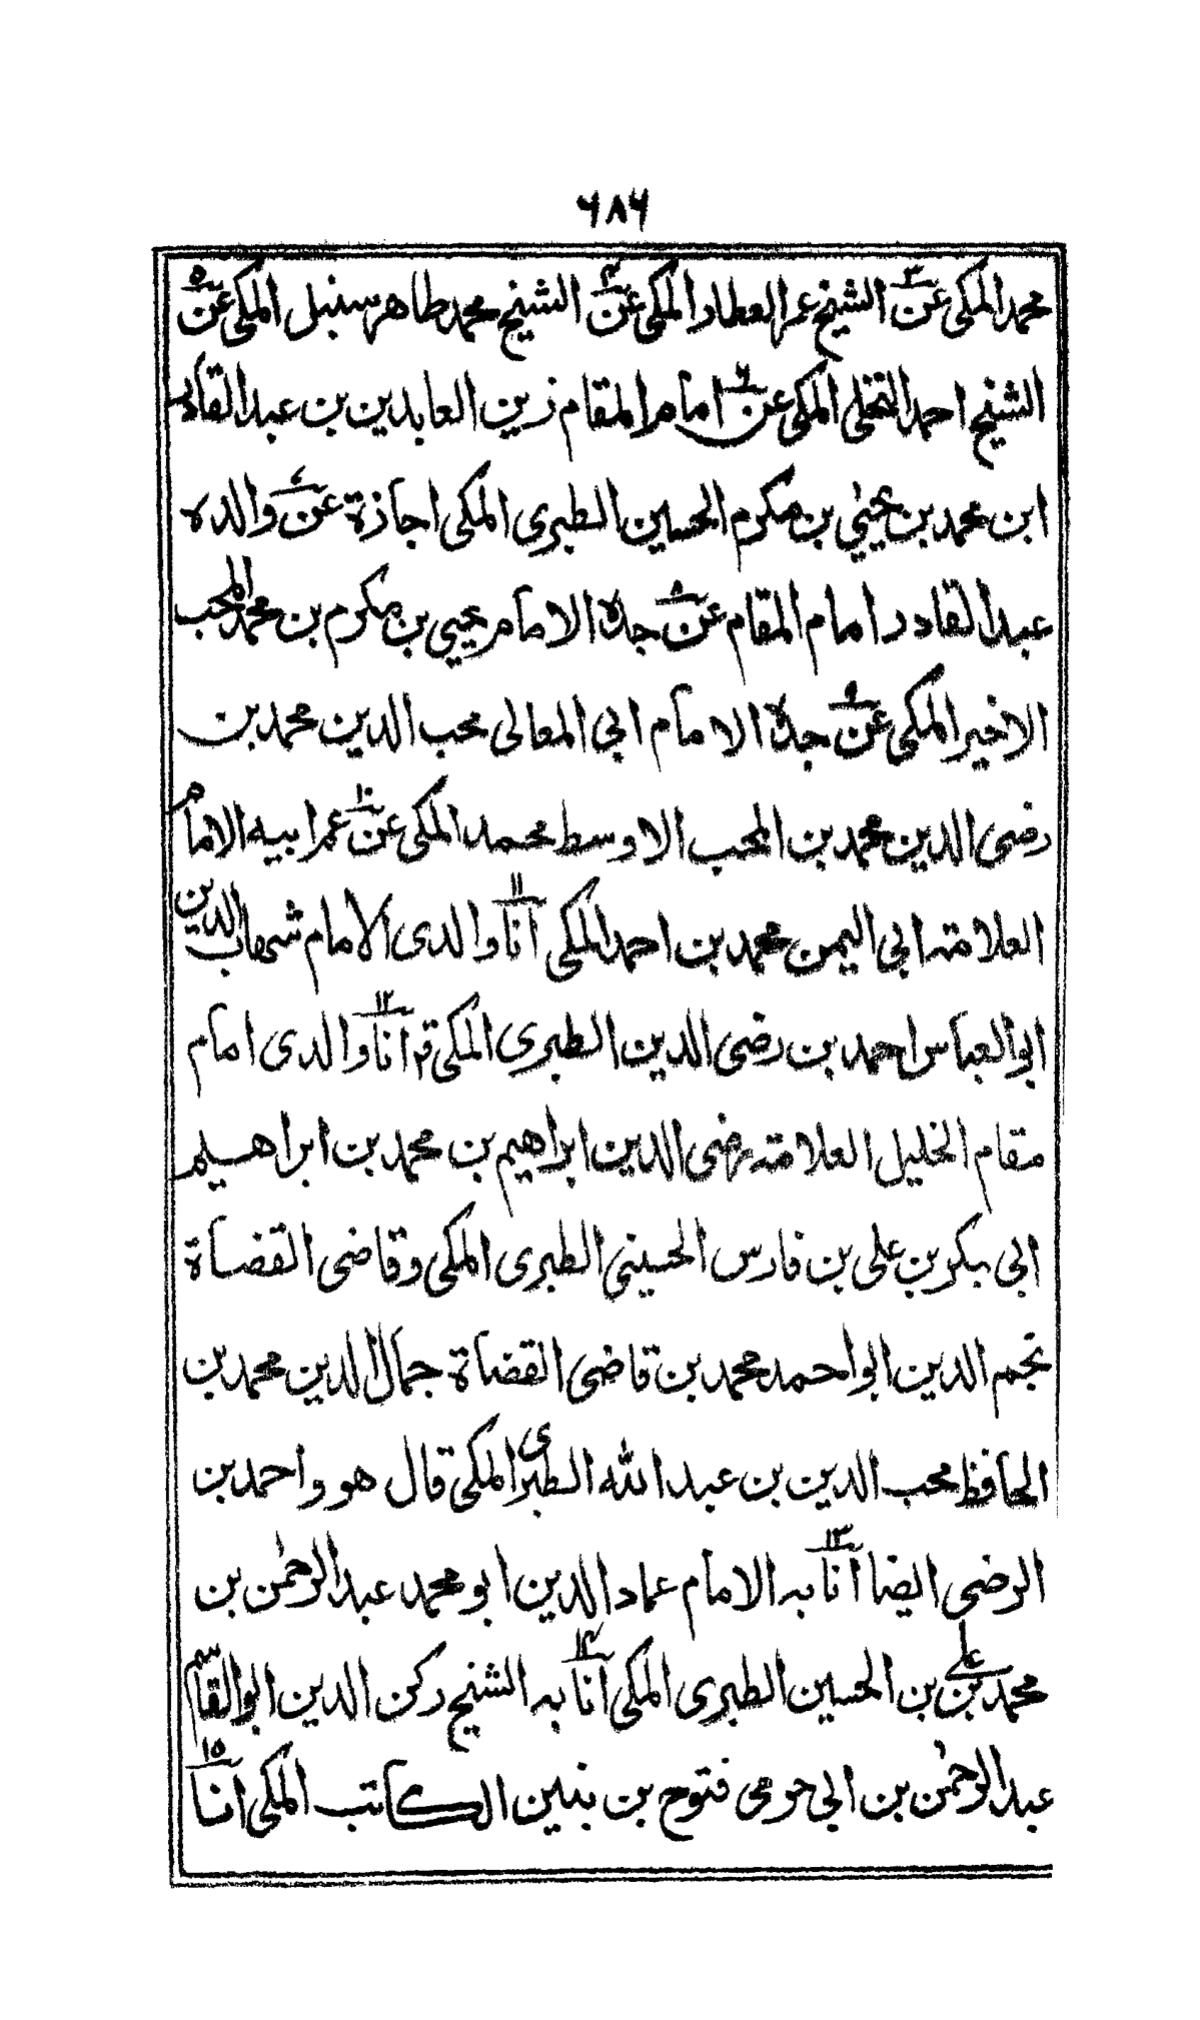 ۶۸۶
محمد المكى عن۳ الشيخ عمر العطار المكى عن۴ الشيخ محمد طاهر سنبل المكى عن۵
الشيخ احمد النخلى المكى عن۶ امام المقام زين العابدين بن عبد القادر
ابن محمد بن يحيٰي بن مكرم الحسين الطبرى المكى اجازة عن۷ والده
عبد القادر امام المقام عن۸ جده الامام يحيي بن مكرم بن محمد المحب
الاخير المكى عن۹ جده الامام ابي المعالى محب الدين محمد بن
رضى الدين محمد بن المحب الاوسط محمد المكى عن۱۰ عم ابيه الامام
العلامة ابي اليمن محمد بن احمد المكى انا۱۱ والدى الامام شهاب الدين
ابو العباس احمد بن رضى الدين الطبرى المكى قم انا۱۲ والدى امام
مقام الخليل العلامة رضى الدين ابراهيم بن محمد بن ابراهيم
ابي بكر بن على بن فارس الحسيني الطبرى المكى وقاضى القضاة
نجم الدين ابو احمد محمد بن قاضى القضاة جمال الدين محمد بن
الحافظ محب الدين بن عبد الله الطبرى المكى قال هو واحمد بن
الرضى ايضا انا۱۳ به الامام عماد الدين ابو محمد عبد الرحمٰن بن
محمد بن على بن الحسين الطبرى المكى انا۱۴ به الشيخ ركن الدين ابو القاسم
عبد الرحمٰن بن ابي حرمى فتوح بن بنين الكاتب المكى انا۱۵